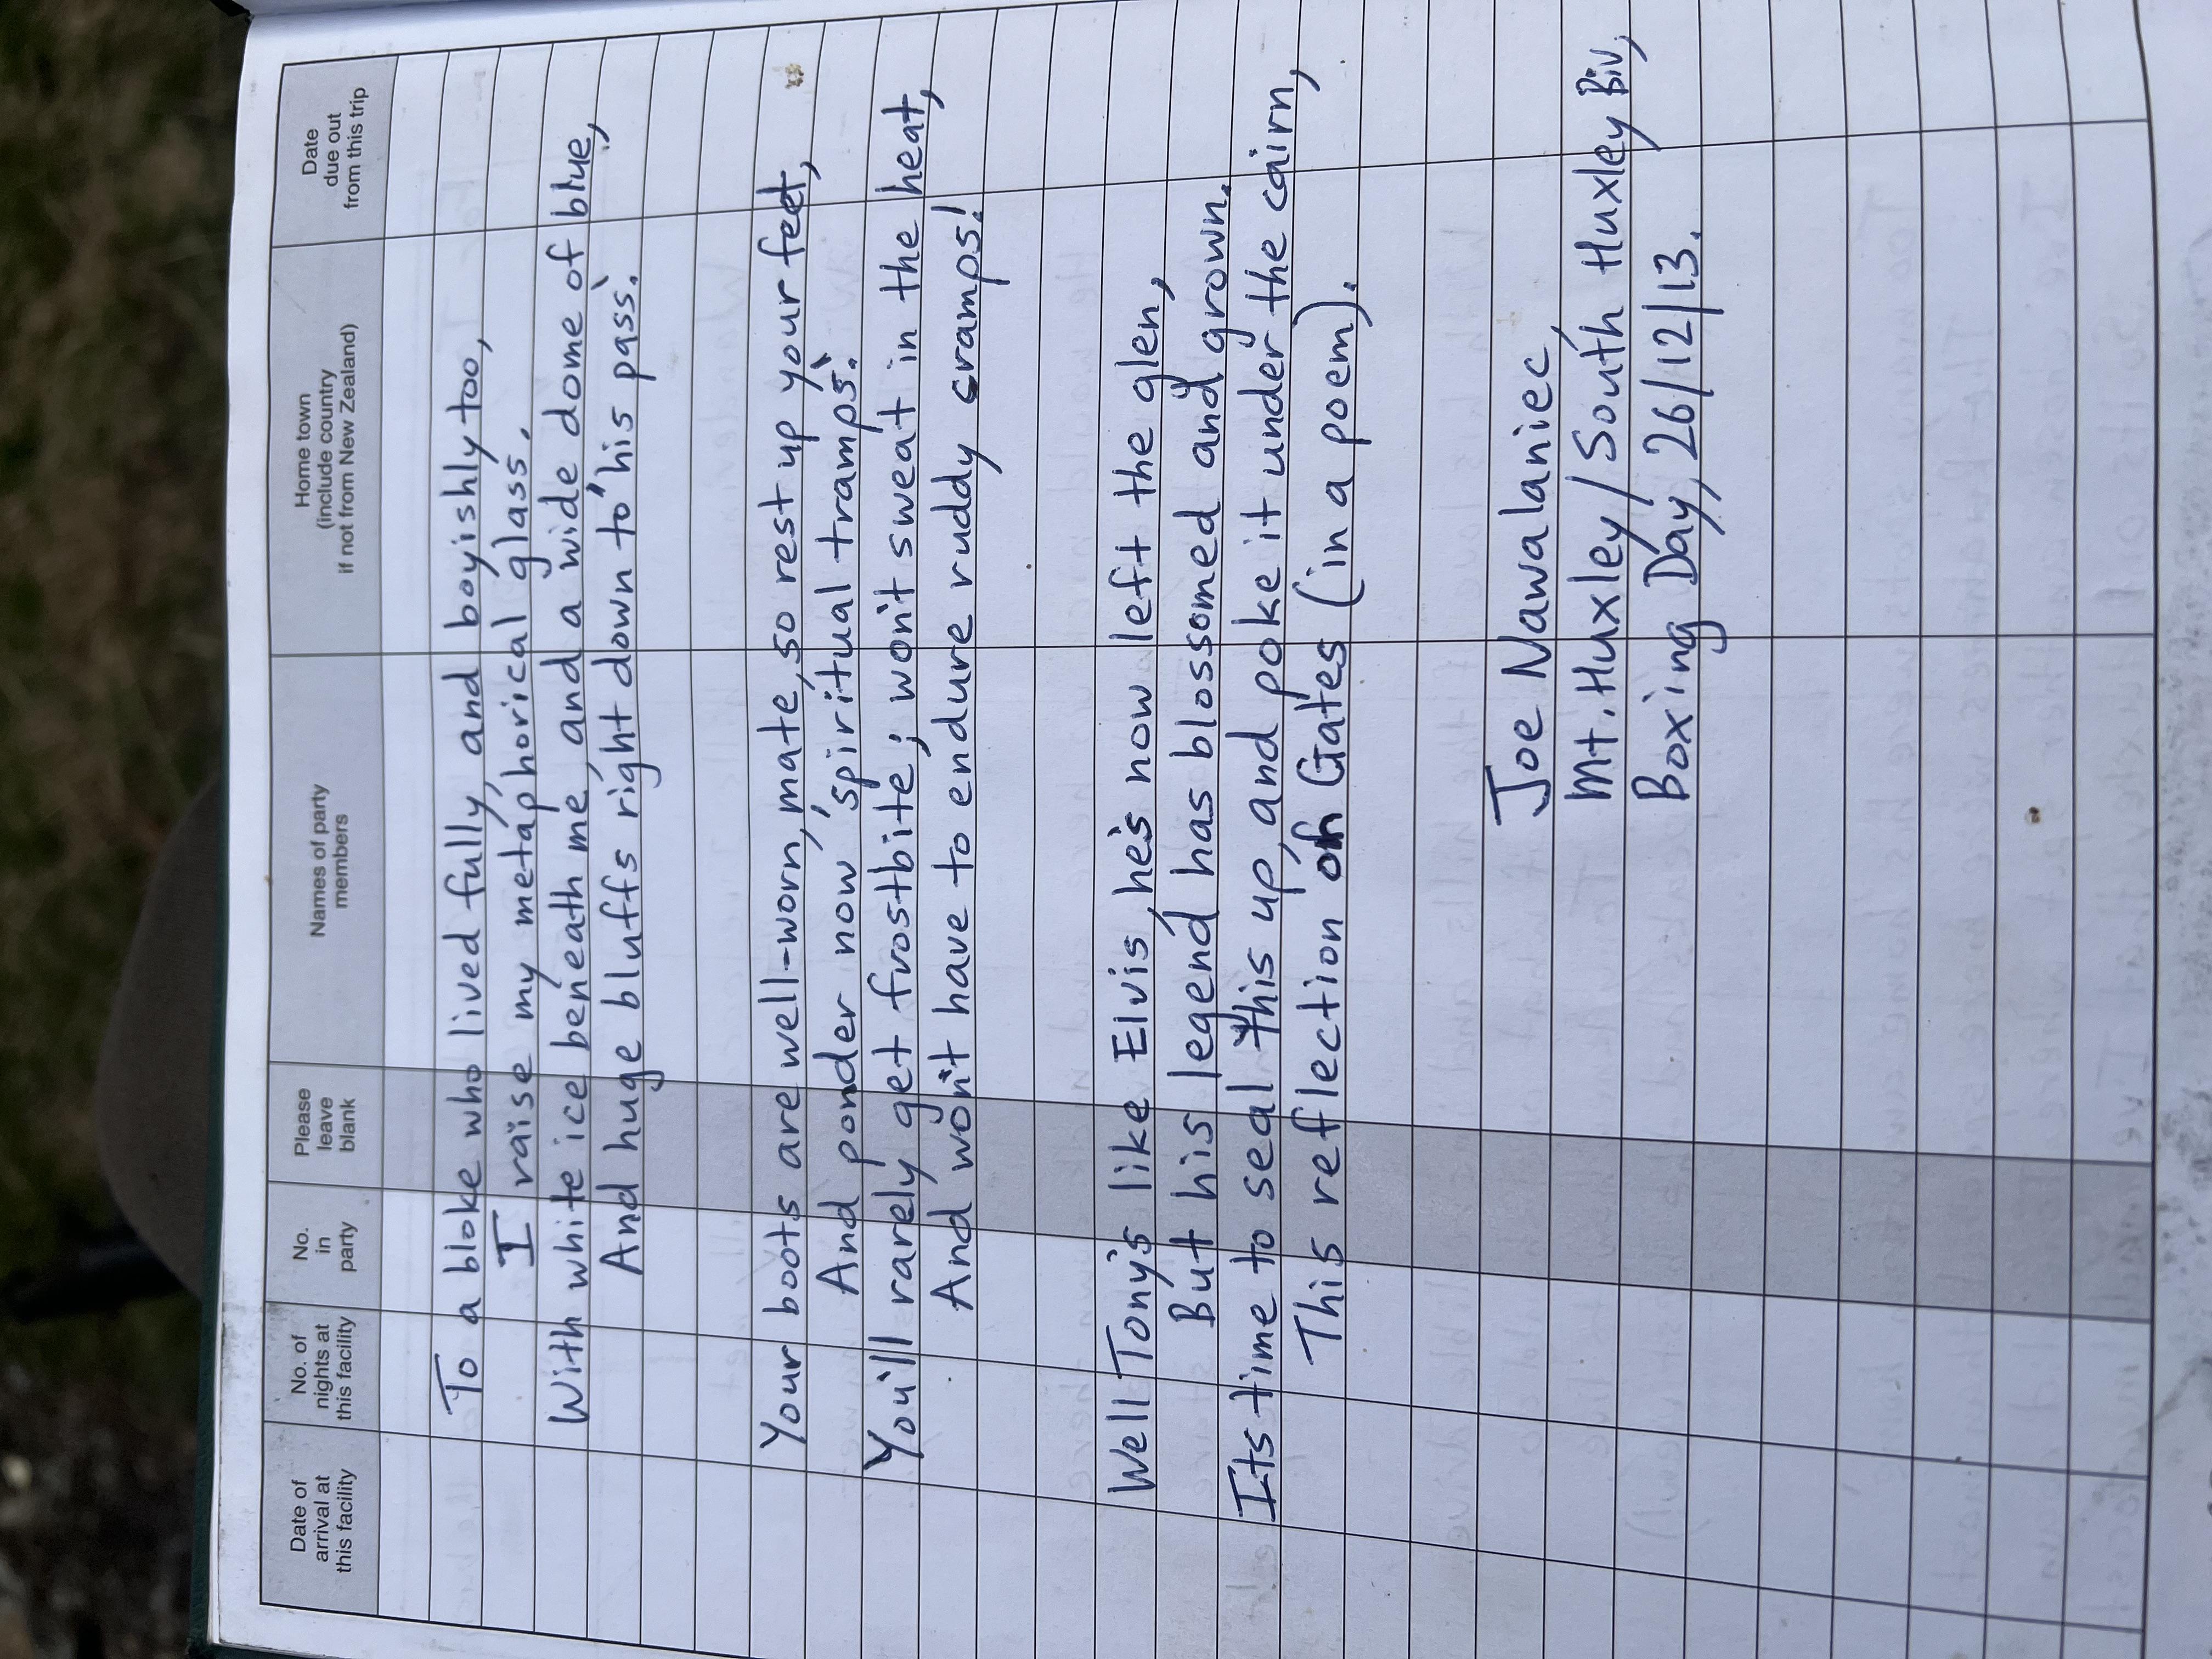 Date of
arrival at
this facility
No. of
nights at
this facility
No.
in
party
Please
leave
blank
Names of party
members
Home town
(include country
if not from New Zealand)
Date
due out
from this trip
To a bloke who lived fully, and boyishly too,
I raise my metaphorical glass,
With white ice beneath me, and a wide dome of blue,
And huge bluffs right down to 'his pass'.
Your boots are well-worn, mate, so rest up your feet,
And ponder now 'spiritual tramps'.
You'll rarely get frostbite; won't sweat in the heat,
And won't have to endure ruddy cramps!
Well Tony's like Elvis, he's now left the glen,
But his legend has blossomed and grown.
Its time to seal this up, and poke it under the cairn,
This reflection on Gates (in a poem).
Joe Nawalaniec,
Mt. Huxley / South Huxley Biv,
Boxing Day, 26/12/13.